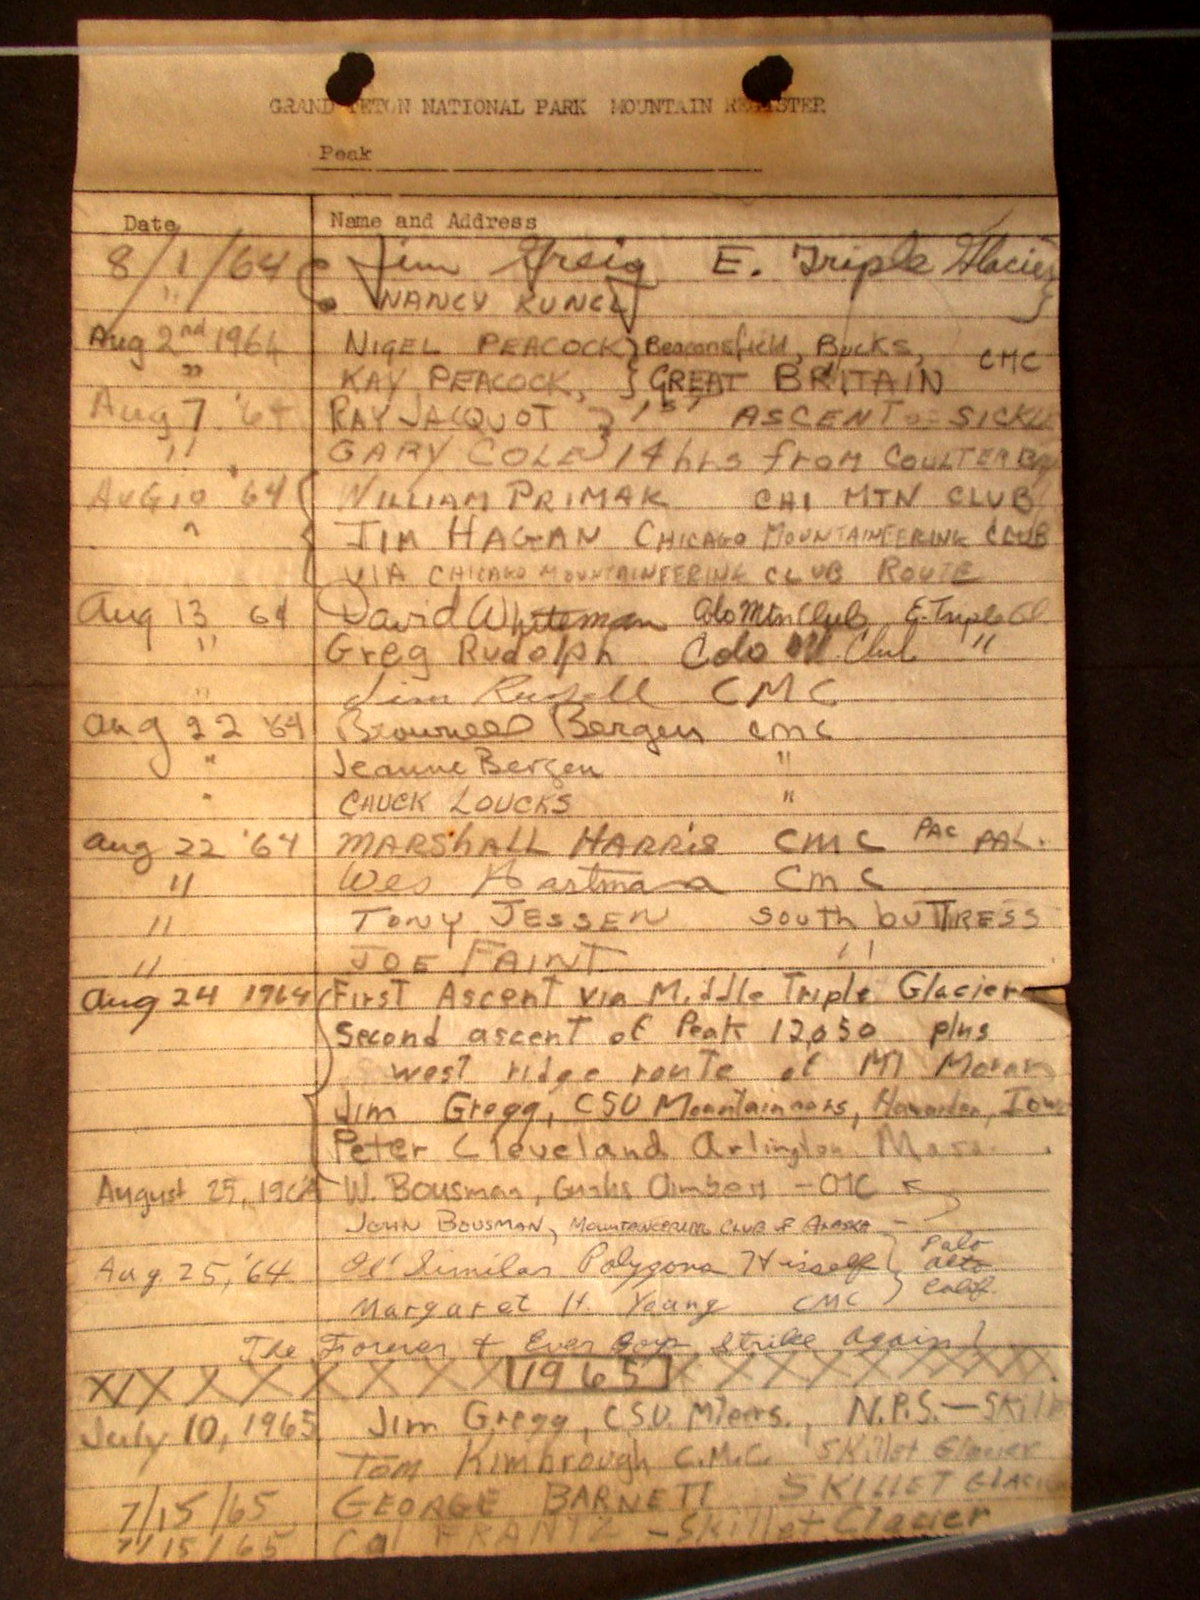 GRAND TETON NATIONAL PARK MOUNTAIN REGISTER
Peak
Date Name and Address
8/1/64 Jim Greig E. Triple Glacier
" NANCY RUNCL
Aug 2nd 1964 NIGEL PEACOCK } Beaconsfield, Bucks, CMC
" KAY PEACOCK, } GREAT BRITAIN
Aug 7 '64 RAY JACQUOT } 1ST ASCENT OF SICKLE
" GARY COLE } 14 hrs from COULTER Bay
AUG 10 '64 WILLIAM PRIMAK CHI MTN CLUB
" JIM HAGAN CHICAGO MOUNTAINEERING CLUB
VIA CHICAGO MOUNTAINEERING CLUB ROUTE
Aug 13 64 David Whiteman Colo Mtn Club E. Triple Gl
" Greg Rudolph Colo Club "
" Jim Russell CMC
Aug 22 '64 Brownee Bergen CMC
" Jeanne Bergen "
" CHUCK LOUCKS "
Aug 22 '64 MARSHALL HARRIS CMC PAC PAL.
" Wes Hartman CMC
" TONY JESSEN South buTTRESS
" JOE FAINT "
Aug 24 1964 First Ascent via Middle Triple Glacier
Second ascent of Peak 12,050 plus
west ridge route of Mt Moran
Jim Gregg, CSU Mountaineers, Hawarden, Iowa
Peter Cleveland Arlington Mass.
August 25, 1964 W. Bousman, - OMC
JOHN BOUSMAN, MOUNTAINEERING CLUB of ALASKA
Aug 25, '64 Ol' Similar Polygons Hisself } Palo Alto Calif.
Margaret H. Young CMC
The Forever & Ever Boys Strike Again!
1965
July 10, 1965 Jim Gregg, C.S.U. Mteers., N.P.S. - Skillet
Tom Kimbrough C.M.C. Skillet Glacier
7/15/65 GEORGE BARNETT SKILLET GLACIER
7/15/65 Cal FRANTZ - Skillet Glacier